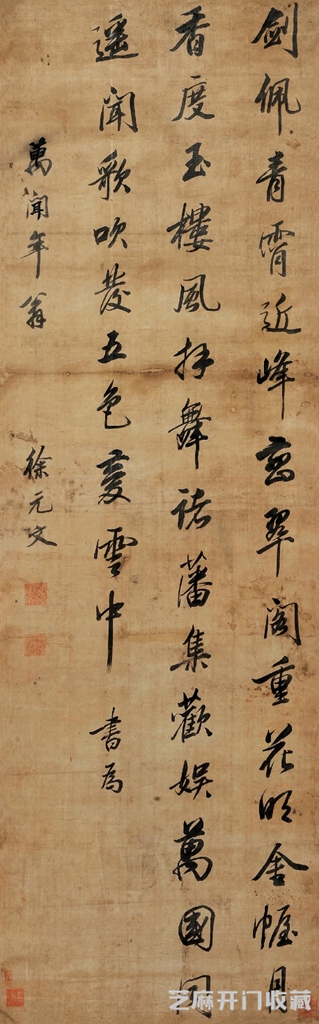 劍佩青霄近峰巒翠閣重花明金幄月
香度玉樓風拜舞諸藩集歡娛萬國同
遥聞歌吹發五色慶雲中 書為
萬聞年翁 徐元文
芝麻开门收藏